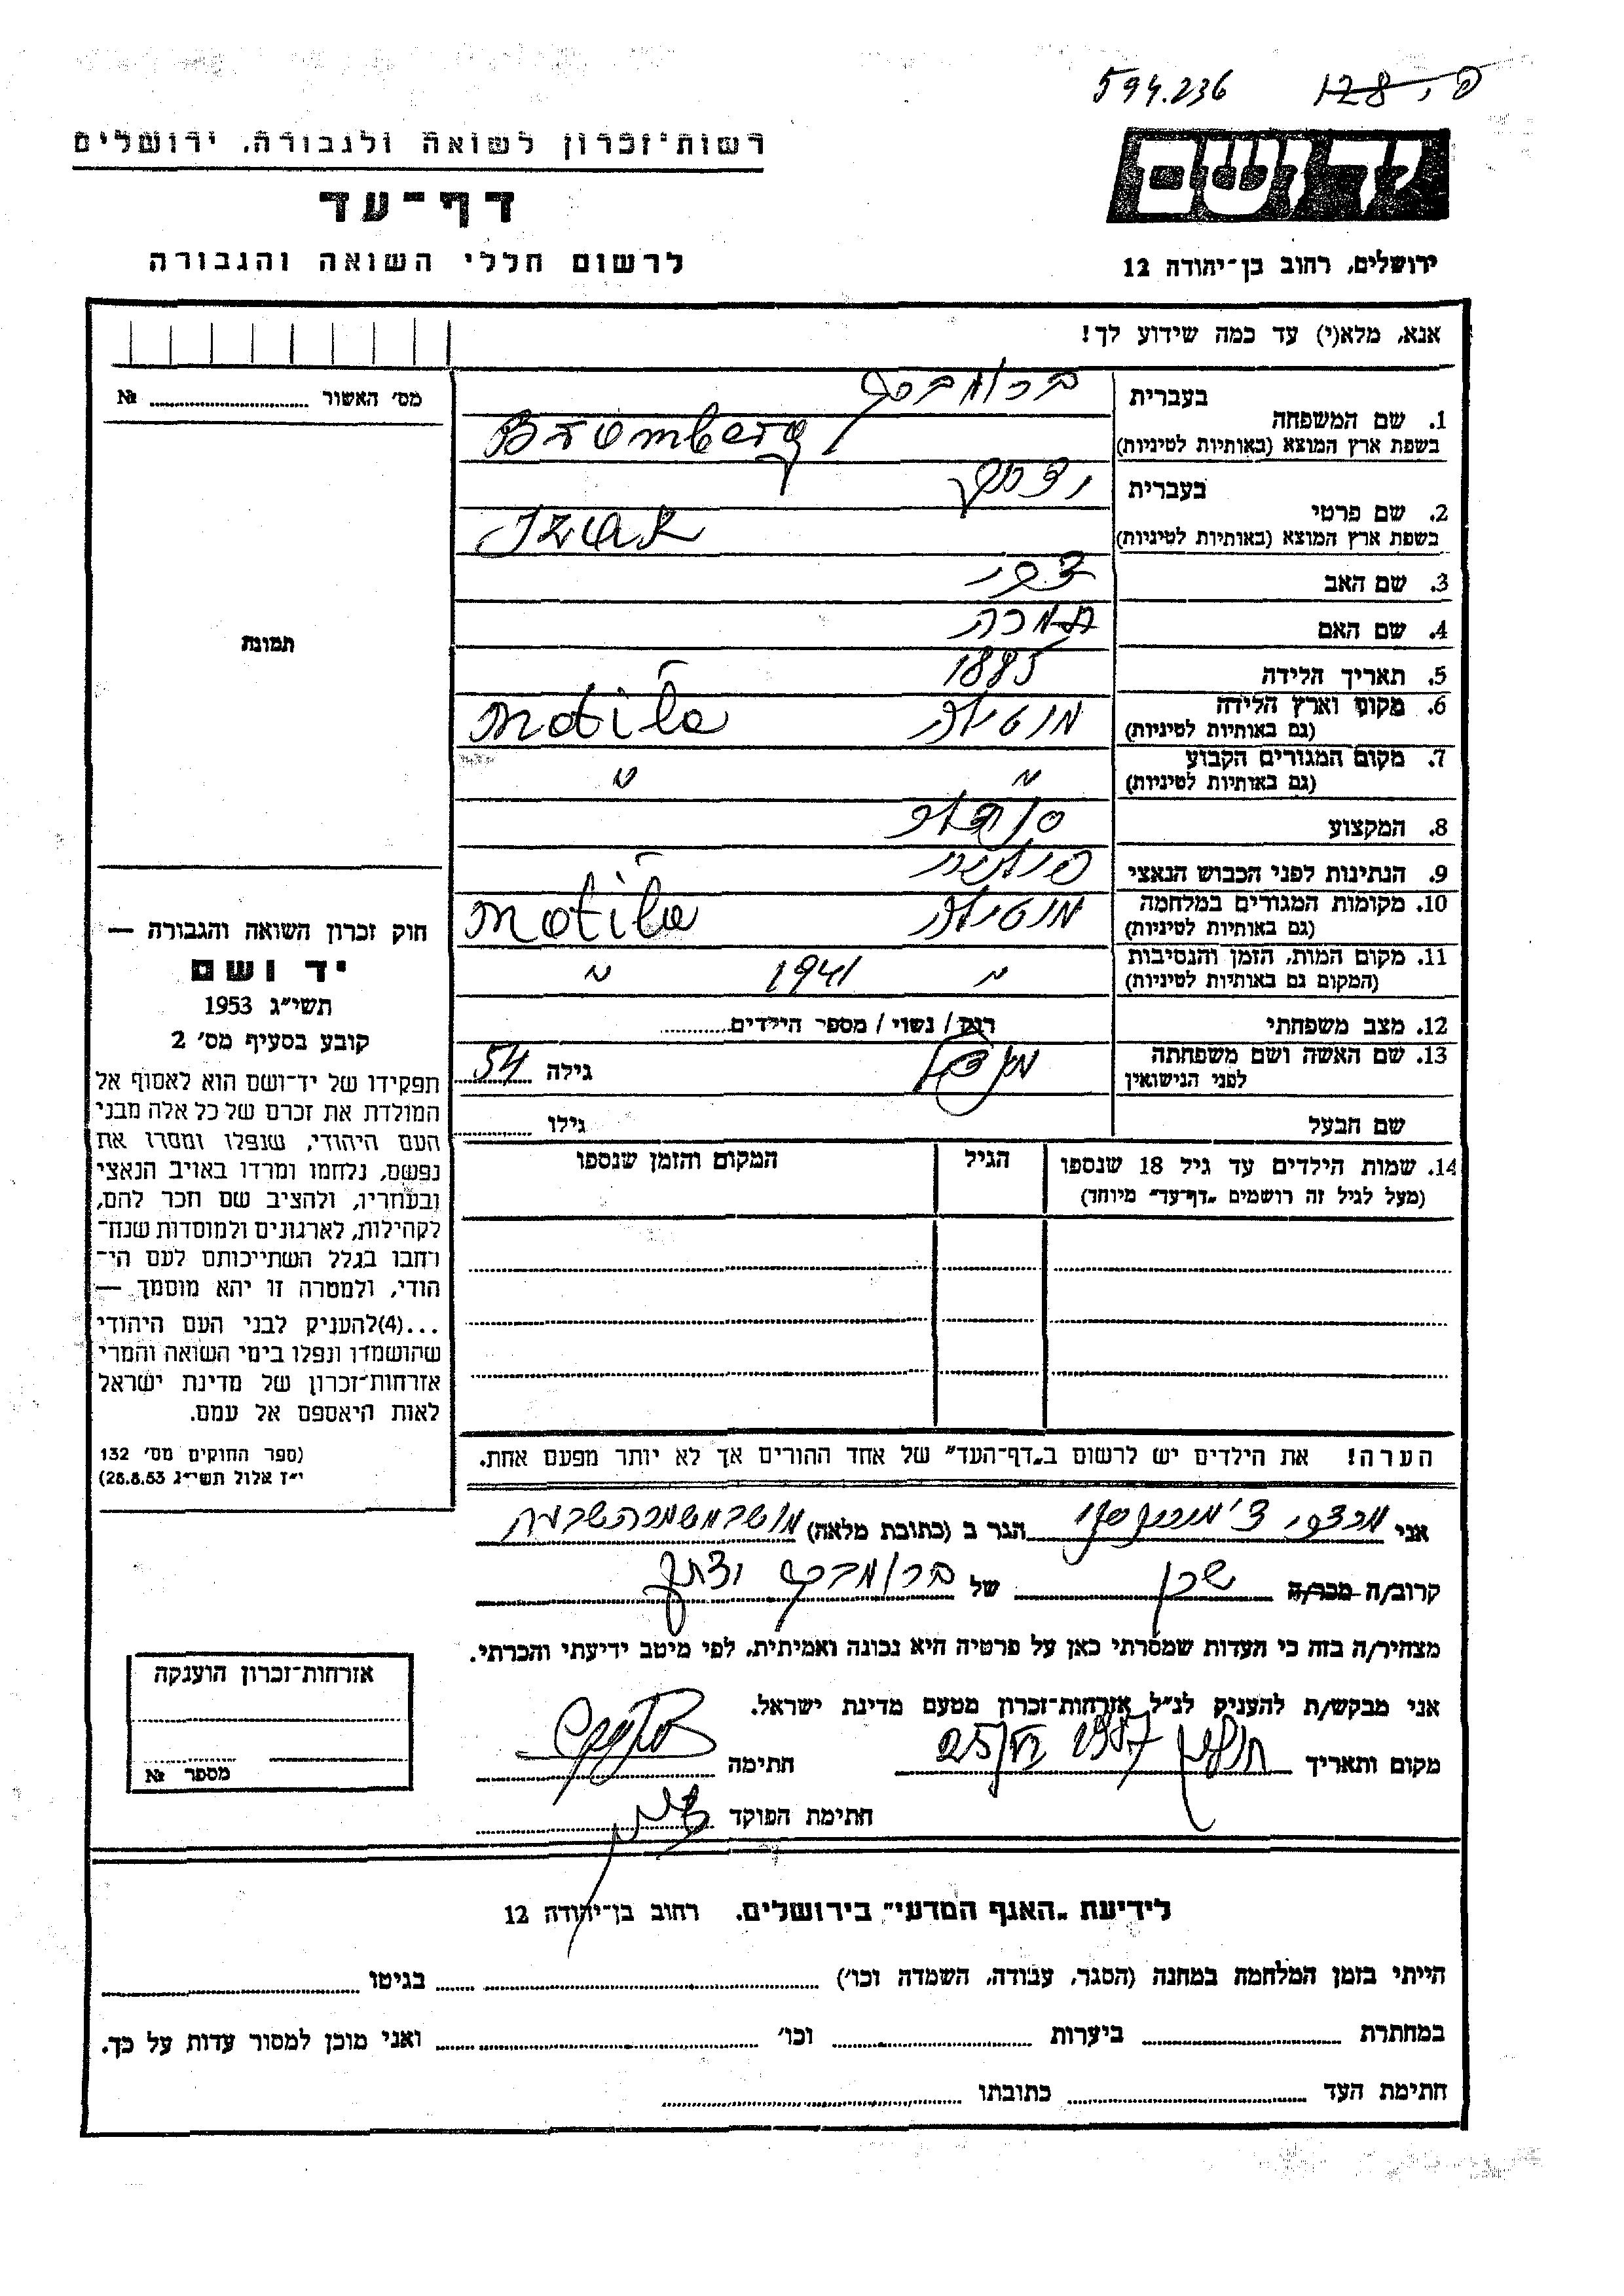 594.236 פ. 128
יד ושם
רשות־זכרון לשואה ולגבורה, ירושלים
דף־עד
לרשום חללי השואה והגבורה
ירושלים, רחוב בן־יהודה 12
אנא, מלא(י) עד כמה שידוע לך!
מס׳ האשור №
בעברית
ברומברג
1. שם המשפחה
בשפת ארץ המוצא (באותיות לטיניות)
Bromberg
בעברית
יצחק
2. שם פרטי
בשפת ארץ המוצא (באותיות לטיניות)
Izak
3. שם האב
צבי
4. שם האם
תמונת
5. תאריך הלידה 1885
6. מקום וארץ הלידה
(גם באותיות לטיניות)
מוטילה motila
7. מקום המגורים הקבוע
(גם באותיות לטיניות)
״ ״
8. המקצוע
9. הנתינות לפני הכבוש הנאצי
10. מקומות המגורים במלחמה
(גם באותיות לטיניות)
מוטילה motila
11. מקום המות, הזמן והנסיבות
(המקום גם באותיות לטיניות)
״ 1941 ״
12. מצב משפחתי
רוק / נשוי / מספר הילדים
13. שם האשה ושם משפחתה
לפני הנישואין
גילה 54
שם הבעל
גילו
14. שמות הילדים עד גיל 18 שנספו
(מעל לגיל זה רושמים „דף־עד״ מיוחד)
הגיל
המקום והזמן שנספו
חוק זכרון השואה והגבורה —
יד ושם
תשי״ג 1953
קובע בסעיף מס׳ 2
תפקידו של יד־ושם הוא לאסוף אל
המולדת את זכרם של כל אלה מבני
העם היהודי, שנפלו ומסרו את
נפשם, נלחמו ומרדו באויב הנאצי
ובעוזריו, ולהציב שם וזכר להם,
לקהילות, לארגונים ולמוסדות שנח־
רבו בגלל השתייכותם לעם הי־
הודי, ולמטרה זו יהא מוסמך —
...(4)להעניק לבני העם היהודי
שהושמדו ונפלו בימי השואה והמרי
אזרחות־זכרון של מדינת ישראל
לאות היאספם אל עמם.
(ספר החוקים מס׳ 132
י״ז אלול תשי״ג 28.8.53)
הערה! את הילדים יש לרשום ב„דף־העד״ של אחד ההורים אך לא יותר מפעם אחת.
אני מרדכי הגר ב (כתובת מלאה) מושב משמר השבעה
קרוב/ה מכר/ה שכן של ברומברג יצחק
מצהיר/ה בזה כי העדות שמסרתי כאן על פרטיה היא נכונה ואמיתית, לפי מיטב ידיעתי והכרתי.
אני מבקש/ת להעניק לנ״ל אזרחות־זכרון מטעם מדינת ישראל.
מקום ותאריך חולון 25/VI 1957 חתימה
חתימת הפוקד
אזרחות־זכרון הוענקה
מספר №
לידיעת „האגף המדעי״ בירושלים. רחוב בן־יהודה 12
הייתי בזמן המלחמה במחנה (הסגר, עבודה, השמדה וכו׳) בגיטו
במחתרת ביערות וכו׳ ואני מוכן למסור עדות על כך.
חתימת העד כתובתו